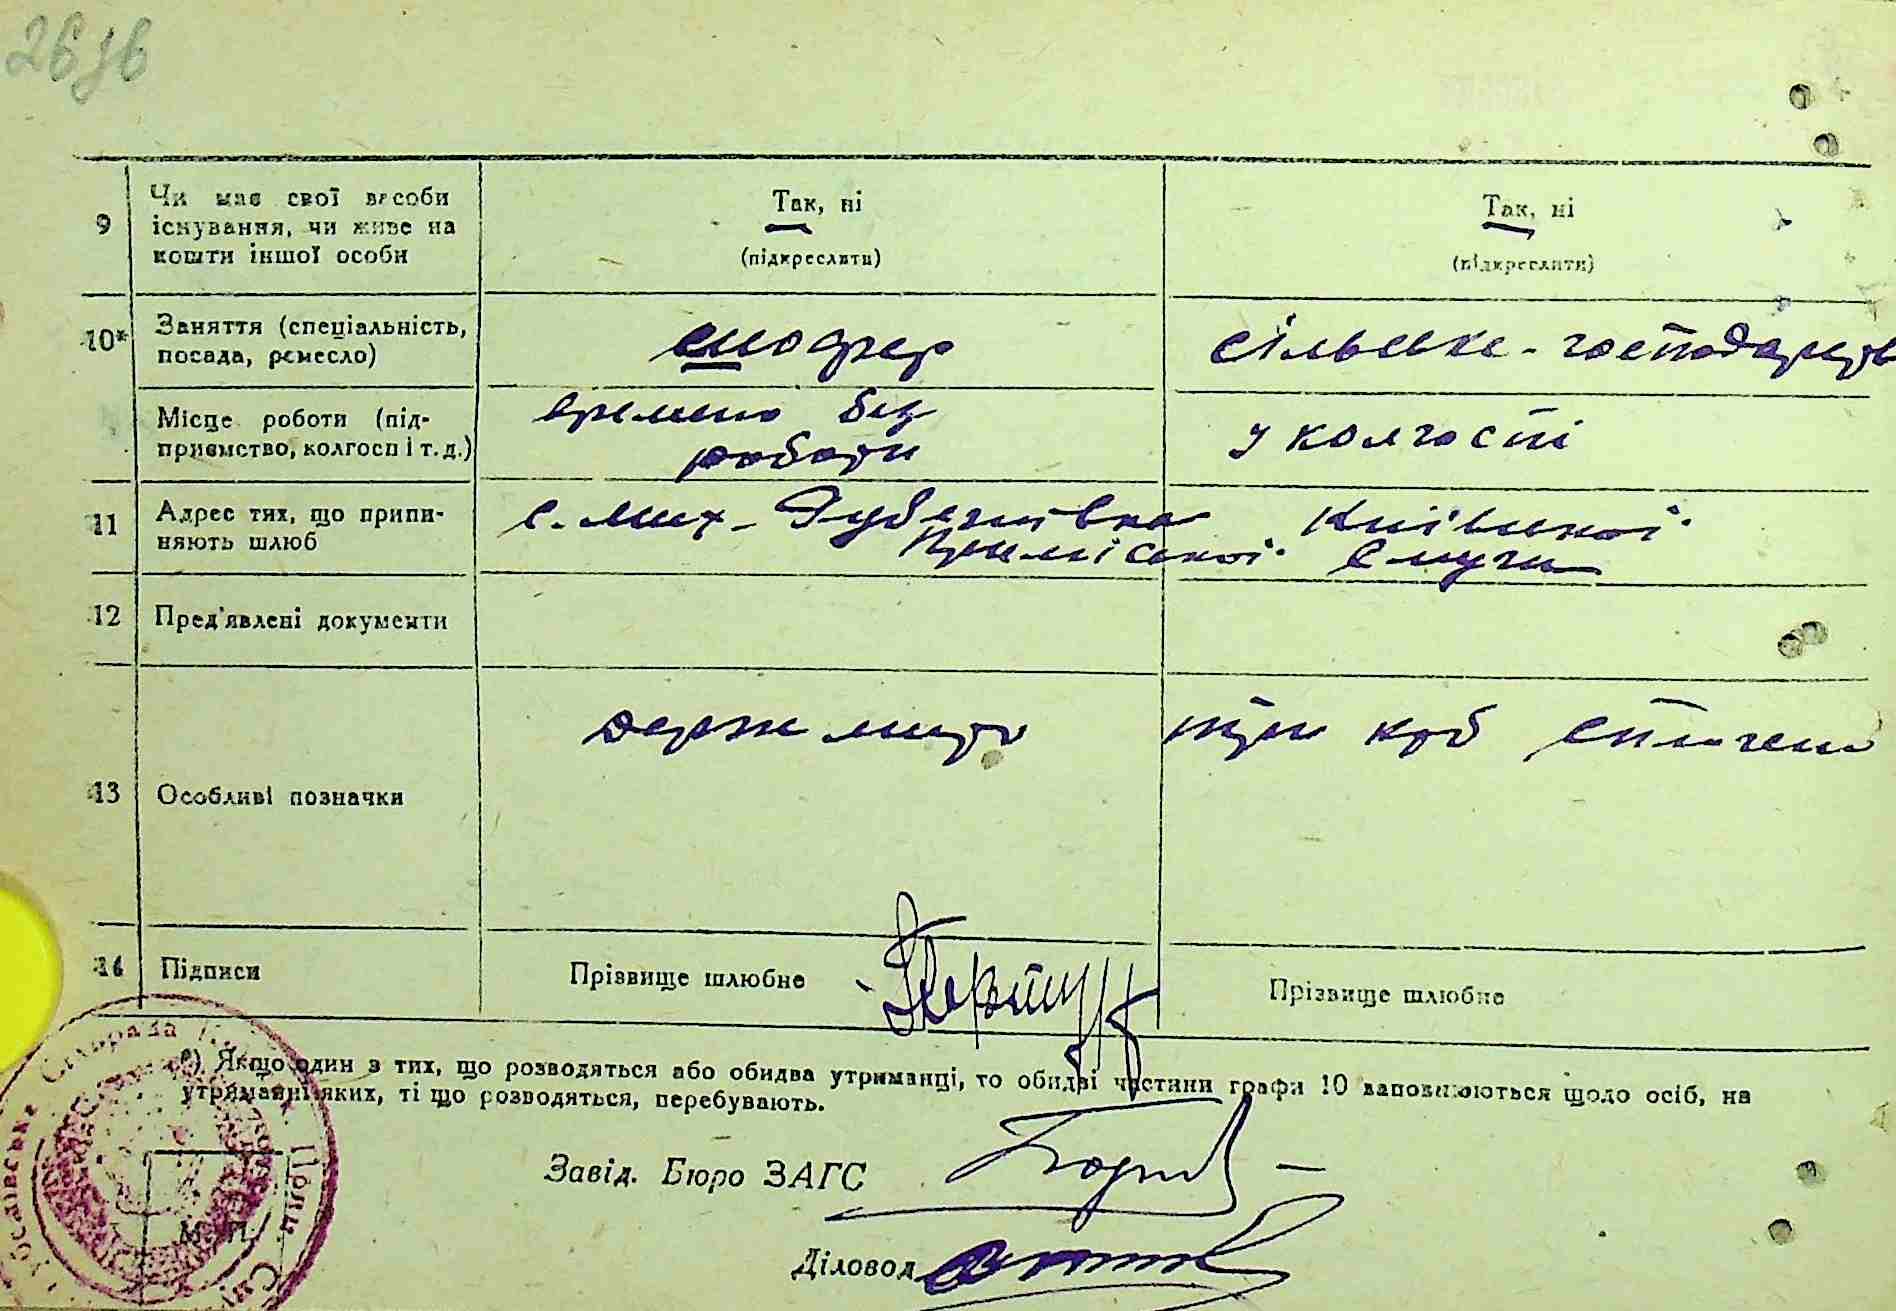 9 Чи має свої засоби існування, чи живе на кошти іншої особи
Так, ні
(підкреслити)
Так, ні
(підкреслити)
10* Заняття (спеціальність, посада, ремесло)
шофер
сільське-господарств
Місце роботи (підприємство, колгосп і т. д.)
времено без роботи
у колгоспі
11 Адрес тих, що припиняють шлюб
с. Мих-Рубежівка Київської
Приміської смуги
12 Пред'явлені документи
13 Особливі позначки
держ мито три крб сплачено
14 Підписи
Прізвище шлюбне
Прізвище шлюбне
*) Якщо один з тих, що розводяться або обидва утриманці, то обидві частини графи 10 заповнюються щодо осіб, на
утриманні яких, ті що розводяться, перебувають.
Завід. Бюро ЗАГС
Діловод
М. П.